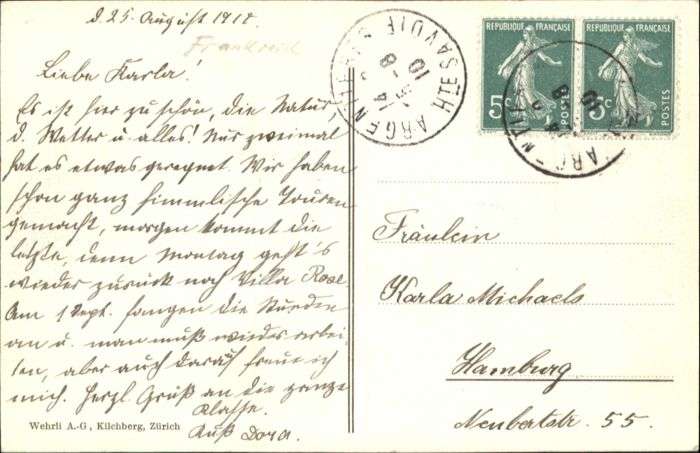 d. 25. August 1912.
Frankreich
Liebe Karla!
Es ist hier zu schön, die Natur
d. Wetter u. alles! Nur zweimal
hat es etwas geregnet. Wir haben
schon ganz himmlische Touren
gemacht, morgen kommt die
letzte, denn Montag geht's
wieder zurück nach Villa Rose
Am 1 Sept. fangen die Stunden
an u. man muß wieder arbei-
ten, aber auch darauf freue ich
mich. Herzl. Gruß an die ganze
Klasse.
Kuß Dora.
Wehrli A.-G., Kilchberg, Zürich
HTE SAVOIE
ARGENTIÈRE
5c
POSTES
5c
POSTES
Fräulein
Karla Michaels
Hamburg
Neubertstr. 55.